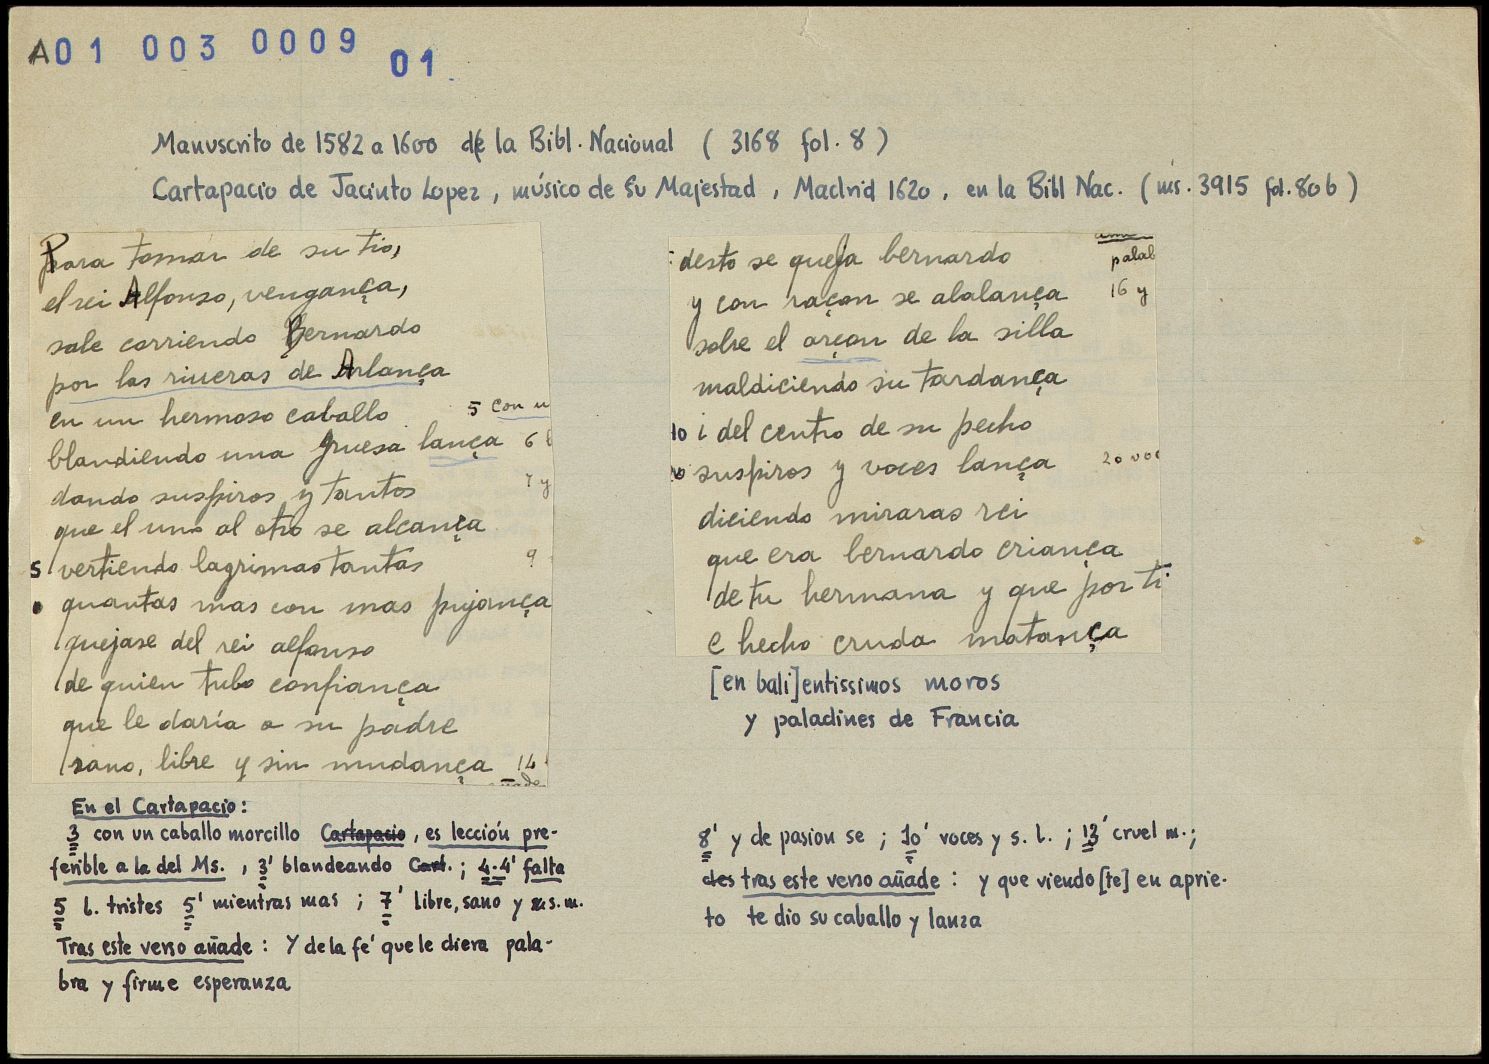 A01 003 0009
01
Manuscrito de 1582 a 1600 de la Bibl. Nacional ( 3168 fol. 8 )
Cartapacio de Jacinto Lopez, músico de Su Majestad, Madrid 1620, en la Bibl Nac. ( ms. 3915 fol. 80b )
Para tomar de su tio,
el rei Alfonso, vengança,
sale corriendo Bernardo
por las riueras de Arlança
en un hermoso caballo
5 con u
blandiendo una gruesa lança 6 b
dando suspiros y tantos 7 y
que el uno al otro se alcança
5 vertiendo lagrimas tantas 9
quantas mas con mas pujança
quejase del rei alfonso
de quien tubo confiança
que le daría a su padre
sano, libre y sin mudança 14
desto se queja bernardo
palab
y con raçon se abalança 16 y
sobre el arçon de la silla
maldiciendo su tardança
10 i del centro de su pecho
suspiros y voces lança 20 voc
diciendo miraras rei
que era bernardo criança
de tu hermana y que por ti
e hecho cruda matança
[en bali]entissimos moros
y paladines de Francia
En el Cartapacio:
3 con un caballo morcillo Cartapacio, es lección pre-
ferible a la del Ms. , 3' blandeando Cart. ; 4-4' falta
5 l. tristes 5' mientras mas ; 7' libre, sano y s. m.
Tras este verso añade : Y de la fe' que le diera pala-
bra y firme esperanza
8' y de pasion se ; 10' voces y s. l. ; 12' cruel m. ;
des tras este verso añade : y que viendo[te] en aprie-
to te dio su caballo y lanza